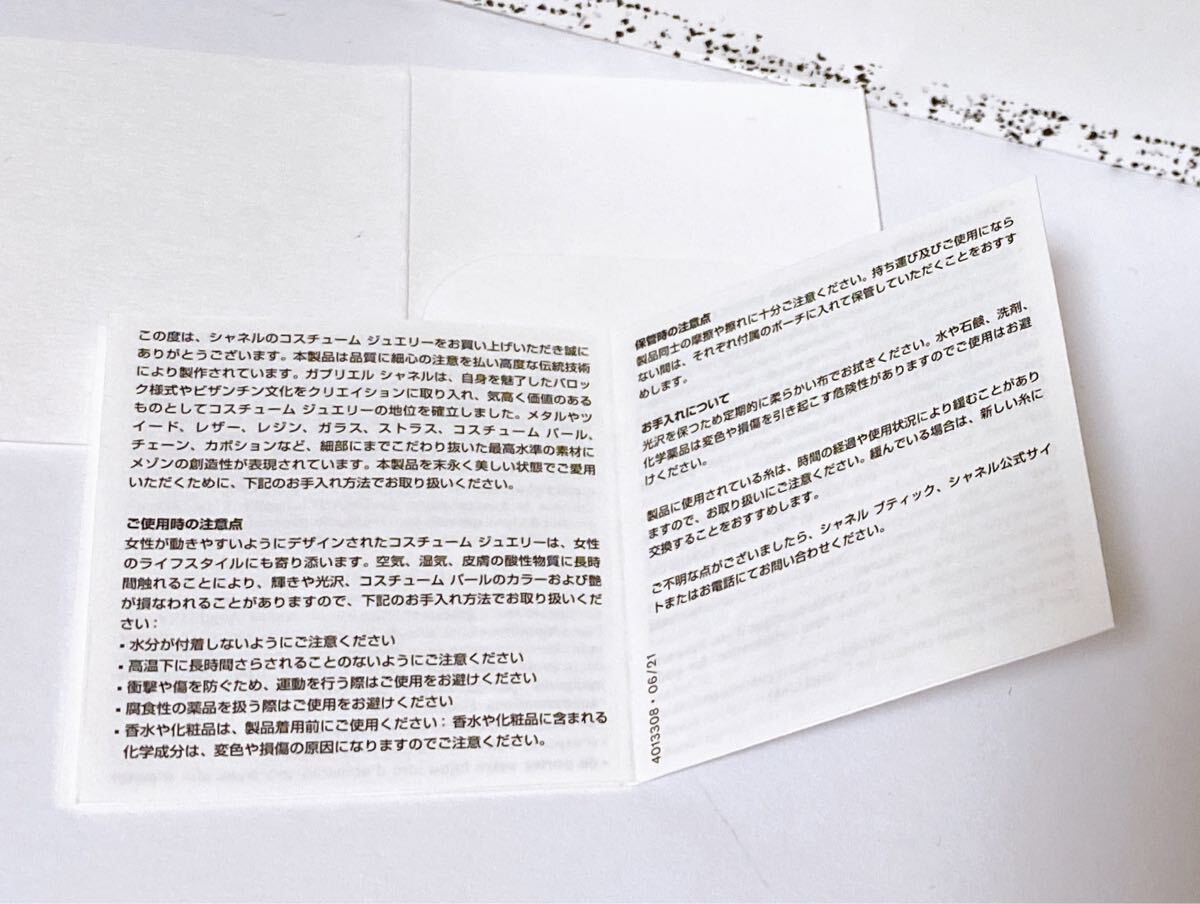 この度は、シャネルのコスチューム ジュエリーをお買い上げいただき誠に
ありがとうございます。本製品は品質に細心の注意を払い高度な伝統技術
により製作されています。ガブリエル シャネルは、自身を魅了したバロッ
ク様式やビザンチン文化をクリエイションに取り入れ、気高く価値のある
ものとしてコスチューム ジュエリーの地位を確立しました。メタルやツ
イード、レザー、レジン、ガラス、ストラス、コスチューム パール、
チェーン、カボションなど、細部にまでこだわり抜いた最高水準の素材に
メゾンの創造性が表現されています。本製品を末永く美しい状態でご愛用
いただくために、下記のお手入れ方法でお取り扱いください。
ご使用時の注意点
女性が動きやすいようにデザインされたコスチューム ジュエリーは、女性
のライフスタイルにも寄り添います。空気、湿気、皮膚の酸性物質に長時
間触れることにより、輝きや光沢、コスチューム パールのカラーおよび艶
が損なわれることがありますので、下記のお手入れ方法でお取り扱いくだ
さい：
• 水分が付着しないようにご注意ください
• 高温下に長時間さらされることのないようにご注意ください
• 衝撃や傷を防ぐため、運動を行う際はご使用をお避けください
• 腐食性の薬品を扱う際はご使用をお避けください
• 香水や化粧品は、製品着用前にご使用ください：香水や化粧品に含まれる
化学成分は、変色や損傷の原因になりますのでご注意ください。
保管時の注意点
製品同士の摩擦や擦れに十分ご注意ください。持ち運び及びご使用になら
ない間は、それぞれ付属のポーチに入れて保管していただくことをおすす
めします。
お手入れについて
光沢を保つため定期的に柔らかい布でお拭きください。水や石鹸、洗剤、
化学薬品は変色や損傷を引き起こす危険性がありますのでご使用はお避
けください。
製品に使用されている糸は、時間の経過や使用状況により緩むことがあり
ますので、お取り扱いにご注意ください。緩んでいる場合は、新しい糸に
交換することをおすすめします。
ご不明な点がございましたら、シャネル ブティック、シャネル公式サイ
トまたはお電話にてお問い合わせください。
4013308 • 06/21